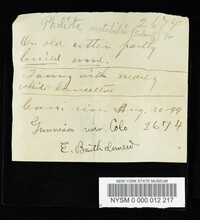 Pholiota 2674
On old rotten partly
buried wood.
Growing with nearly
white lamellae
Cam. river Aug 30-99
Gunnison riv. Colo 1674
E. Bartholomew
NEW YORK STATE MUSEUM
NYSM 0 000 012 217